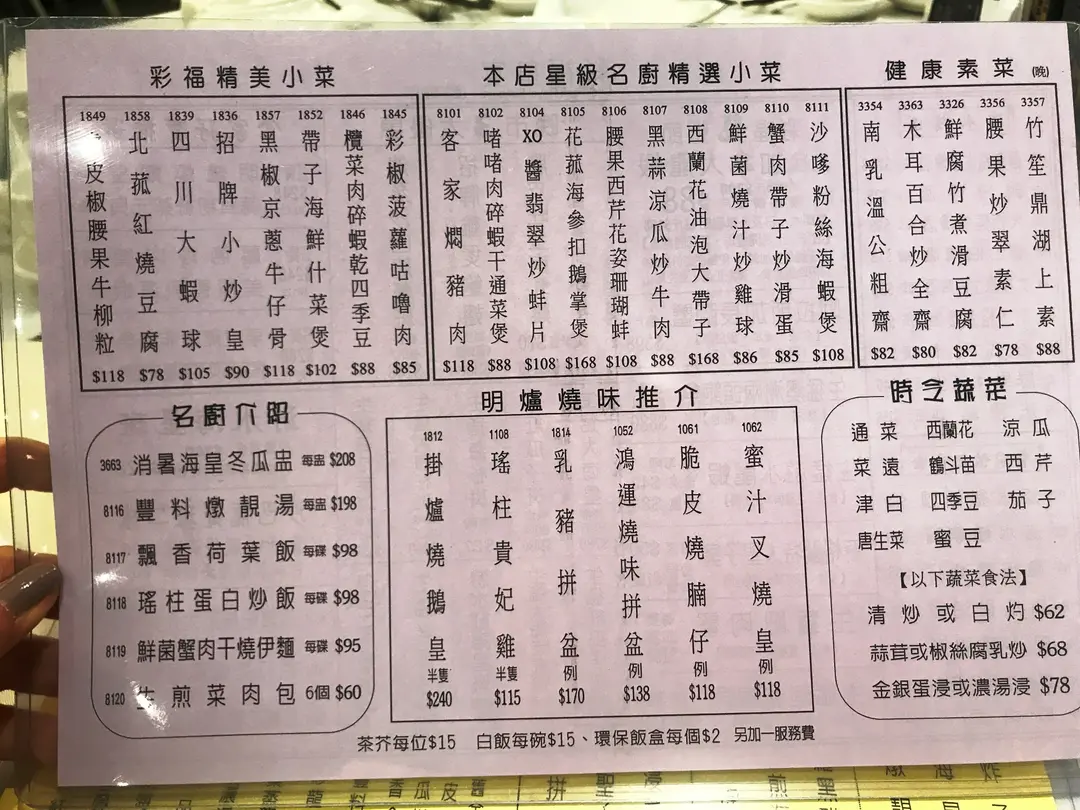 彩福精美小菜
1849 皮椒腰果牛柳粒 $118
1858 北菰紅燒豆腐 $78
1839 四川大蝦球 $105
1836 招牌小炒皇 $90
1857 黑椒京蔥牛仔骨 $118
1852 帶子海鮮什菜煲 $102
1846 欖菜肉碎蝦乾四季豆 $88
1845 彩椒菠蘿咕嚕肉 $85
本店星級名廚精選小菜
8101 客家燜豬肉 $118
8102 啫啫肉碎蝦干通菜煲 $88
8104 XO醬翡翠炒蚌片 $108
8105 花菰海參扣鵝掌煲 $168
8106 腰果西芹花姿珊瑚蚌 $108
8107 黑蒜涼瓜炒牛肉 $88
8108 西蘭花油泡大帶子 $168
8109 鮮菌燒汁炒雞球 $86
8110 蟹肉帶子炒滑蛋 $85
8111 沙嗲粉絲海蝦煲 $108
健康素菜 (晚)
3354 南乳溫公粗齋 $82
3363 木耳百合炒全齋 $80
3326 鮮腐竹煮滑豆腐 $82
3356 腰果炒翠素仁 $78
3357 竹笙鼎湖上素 $88
名廚介紹
3663 消暑海皇冬瓜盅 每盅 $208
8116 豐料燉靚湯 每盅 $198
8117 飄香荷葉飯 每碟 $98
8118 瑤柱蛋白炒飯 每碟 $98
8119 鮮菌蟹肉干燒伊麵 每碟 $95
8120 生煎菜肉包 6個 $60
明爐燒味推介
1812 掛爐燒鵝皇 半隻 $240
1108 瑤柱貴妃雞 半隻 $115
1814 乳豬拼盆 例 $170
1052 鴻運燒味拼盆 例 $138
1061 脆皮燒腩仔 例 $118
1062 蜜汁叉燒皇 例 $118
時令蔬菜
通菜 西蘭花 涼瓜
菜遠 鶴斗苗 西芹
津白 四季豆 茄子
唐生菜 蜜豆
【以下蔬菜食法】
清炒或白灼 $62
蒜茸或椒絲腐乳炒 $68
金銀蛋浸或濃湯浸 $78
茶芥每位$15 白飯每碗$15、環保飯盒每個$2 另加一服務費